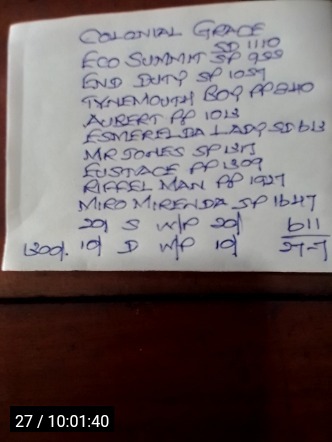 COLONIAL GRACE
SD 1110
ECO SUMMIT SP 955
END DUTY SP 1057
TYNEMOUTH BOY PP 840
AUBERT PP 1013
ESMERELDA LADY SD 613
MR JONES SP 1317
EUSTACE PP 1309
RIFFEL MAN PP 1927
MIRO MIRENDA SP 1647
20/ S W/P 20/ 611
1300/. 10/ D W/P 10/ 27-7
27 / 10:01:40